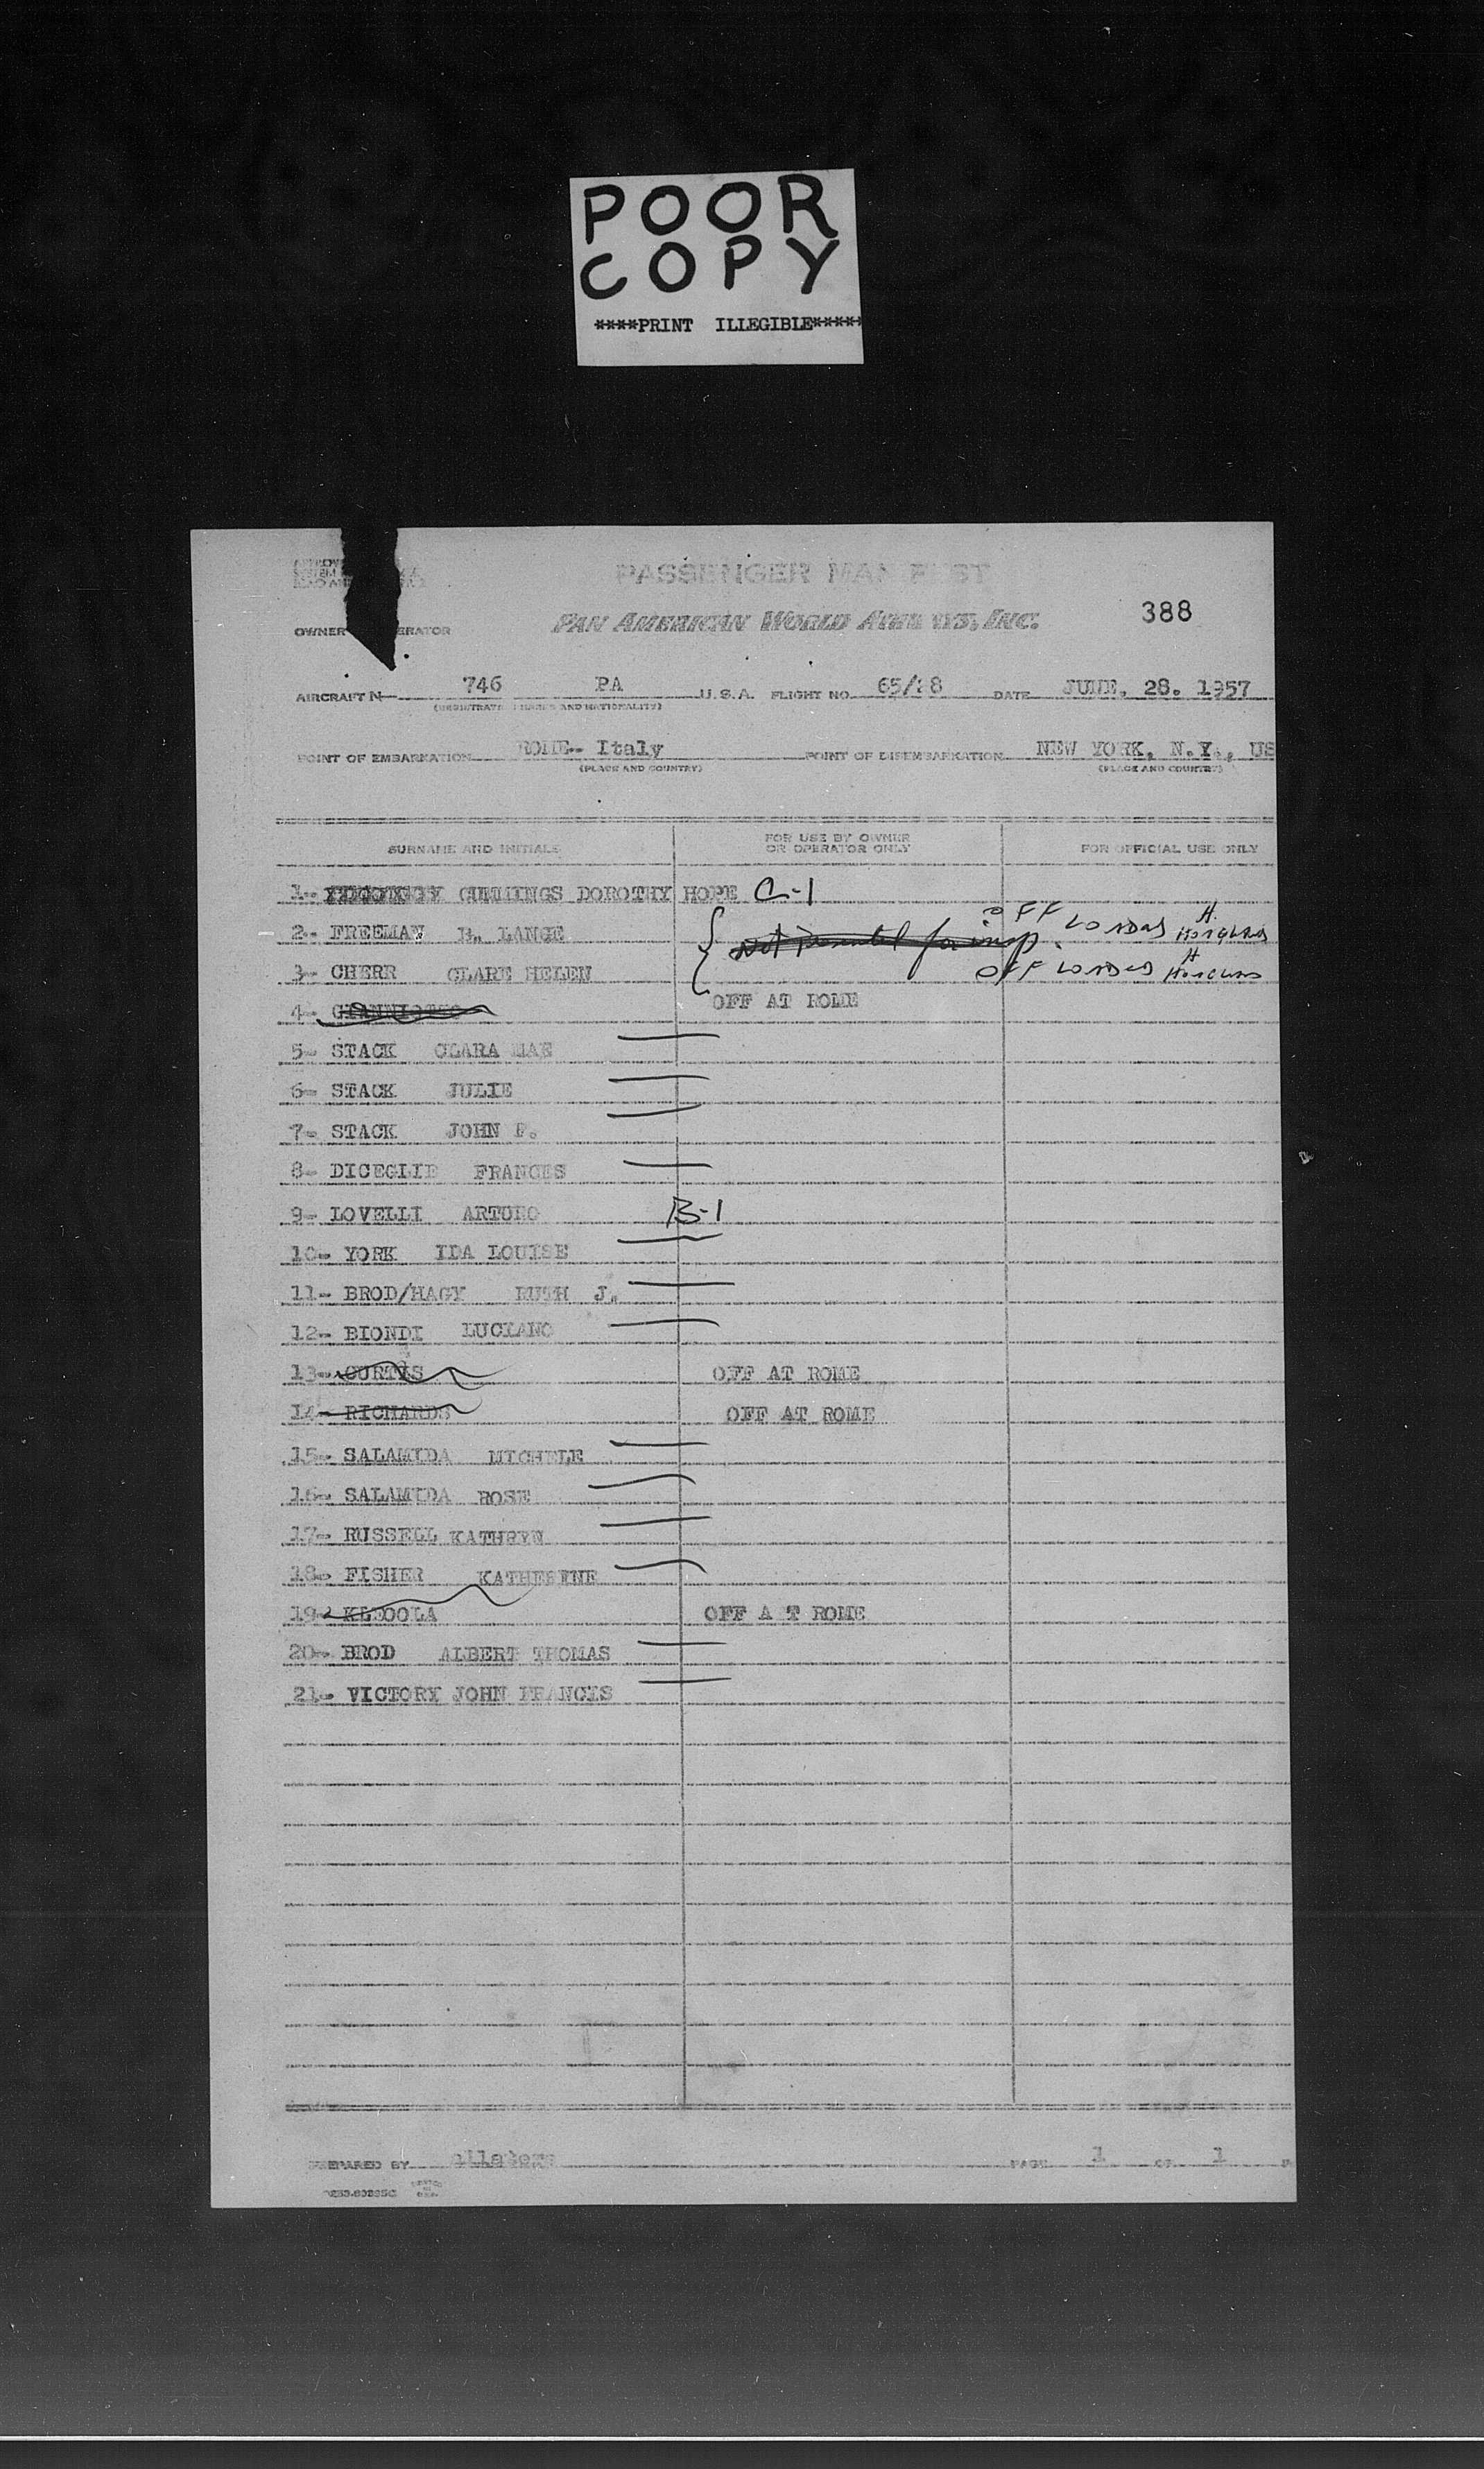 POOR
COPY
****PRINT ILLEGIBLE*****
PASSENGER MANIFEST
PAN AMERICAN WORLD AIRWAYS, INC.
388
OWNER OPERATOR
AIRCRAFT N 746 PA U.S.A. FLIGHT NO. DATE JUNE, 28. 1957
POINT OF EMBARKATION ROME- Italy POINT OF DISEMBARKATION NEW YORK, N.Y., US
(PLACE AND COUNTRY) (PLACE AND COUNTRY)
SURNAME AND INITIALS FOR USE BY OWNER OR OPERATOR ONLY FOR OFFICIAL USE ONLY
1- CUMMINGS DOROTHY HOPE C-1
2- FREEMAN B. LANGE OFF
3- CHERR CLARE HELEN OFF
4- OFF AT ROME
5- STACK CLARA MAE
6- STACK JULIE
7- STACK JOHN P.
8- DICEGLIE FRANCES
9- LOVELLI ARTURO B-1
10- YORK IDA LOUISE
11- BROD/HAGY RUTH J.
12- BIONDI LUCIANO
13- CURTIS OFF AT ROME
14- RICHARDS OFF AT ROME
15- SALAMIDA MICHELE
16- SALAMIDA ROSE
17- RUSSELL KATHRYN
18- FISHER KATHERINE
19- KLEOOLA OFF A T ROME
20- BROD ALBERT THOMAS
21- VICTORY JOHN FRANCIS
PREPARED BY PAGE 1 OF 1